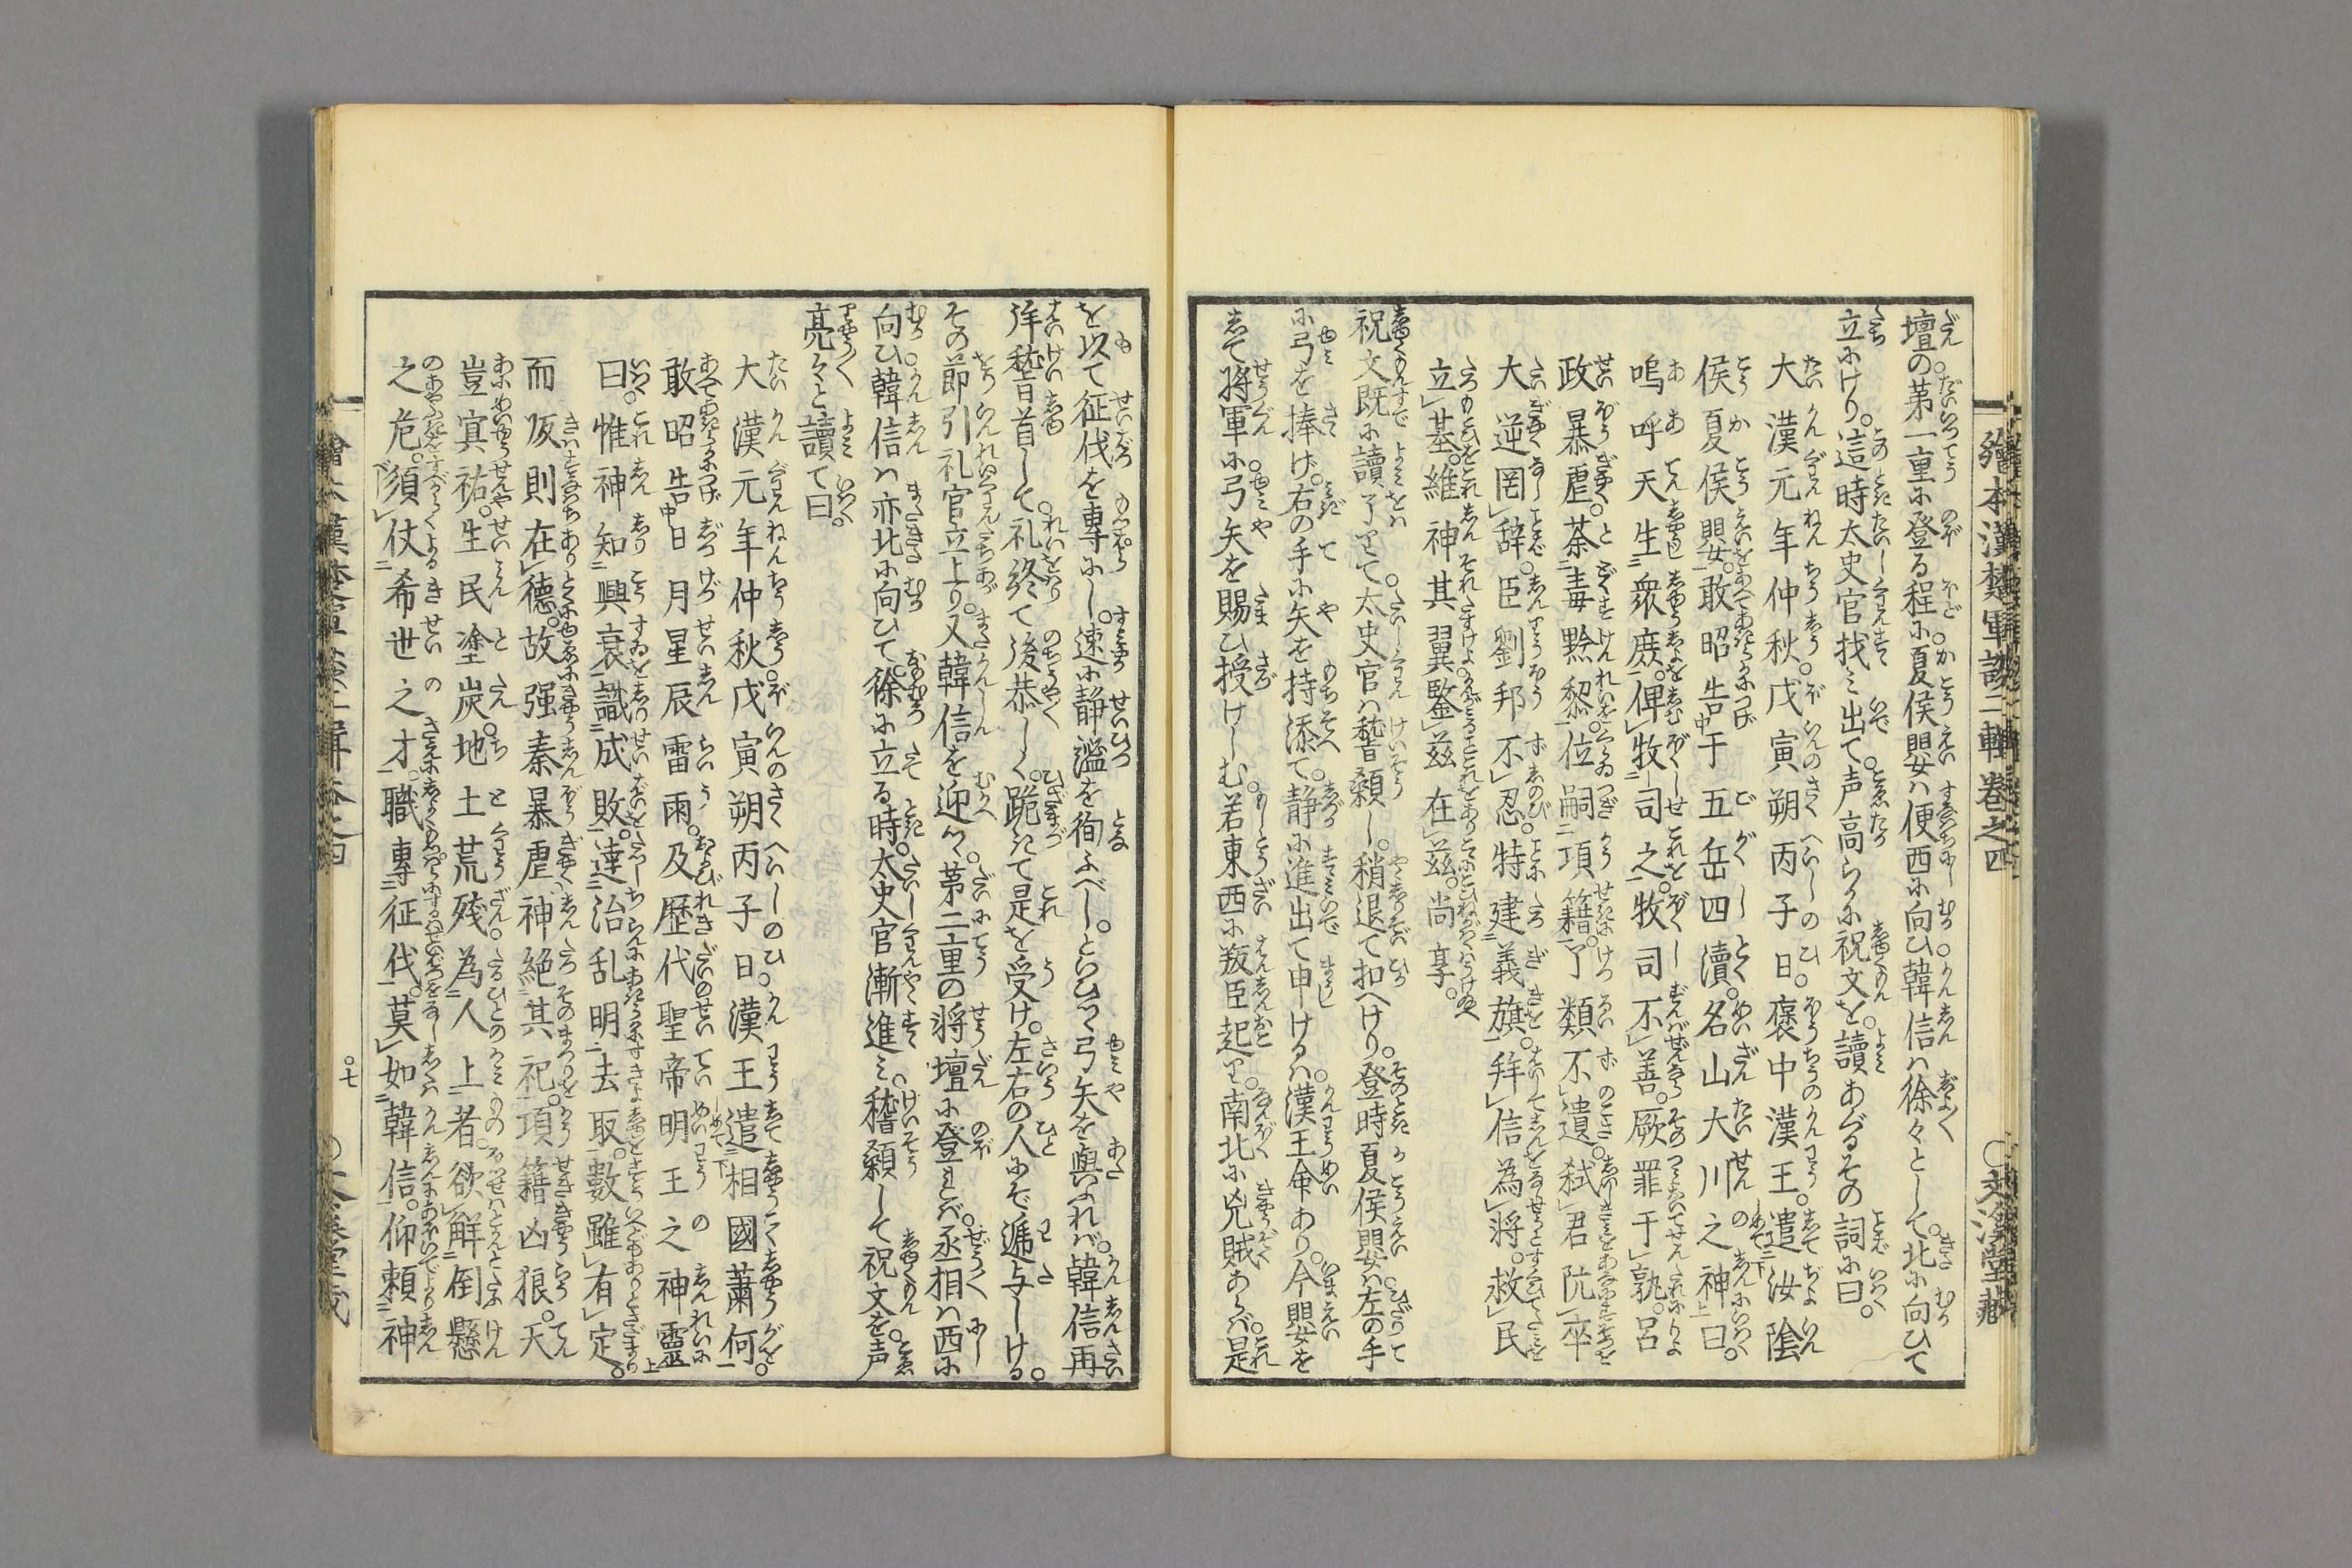 繪本漢楚軍談二輯卷之四
壇の第一重に登る程に。夏侯嬰ハ便西に向ひ。韓信ハ徐々として。北に向ひて
立にけり。這時太史官找ミ出て。声高らかに祝文を。讀あぐるその詞に曰。
大漢元年仲秋。戊寅朔丙子日。褒中漢王。遣汝陰
侯夏侯嬰。敢昭告于五岳四瀆。名山大川之神曰。
嗚呼天生衆庶。俾牧司之。牧司不善。厥罪于孰。呂
政暴虐。荼毒黔黎。位嗣項籍。了類不遺。弑君阬卒
大逆罔辞。臣劉邦不忍。特建義旗。拜信為将。救民
立基。維神其翼鑒茲在茲。尚享。
祝文既に讀了りて。太史官ハ稽顙し。稍退て扣へけり。登時夏侯嬰ハ。左の手
に弓を捧け。右の手に矢を持添て。静に進出て申けるハ。漢王命あり。今嬰を
して将軍に。弓矢を賜ひ授けしむ。若東西に叛臣起り。南北に兇賊あらバ。是
を以て征伐を専にし。速に静謐を徇ふべし。といひつゝ弓矢を與ふれバ。韓信再
拜稽首して。礼終て後恭しく。跪きて是を受け。左右の人にぞ遞与しける。
その節引礼官立上り。又韓信を迎へ。第二重の将壇に登れバ。丞相ハ西に
向ひ。韓信ハ亦北に向ひて。徐に立る時。太史官漸進ミ。稽顙して祝文を。声
亮々と讀て曰。
大漢元年仲秋。戊寅朔丙子日。漢王遣相國蕭何。
敢昭告日月星辰雷雨。及歴代聖帝明王之神靈
曰。惟神知興衰識成敗。達治乱明去取。數雖有定。
而仮則在德。故强秦暴虐神絶其祀。項籍凶狼。天
豈冥祐。生民塗炭。地土荒残。為人上者。欲解倒懸
之危。須仗希世之才。職專征伐。莫如韓信。仰頼神
○七